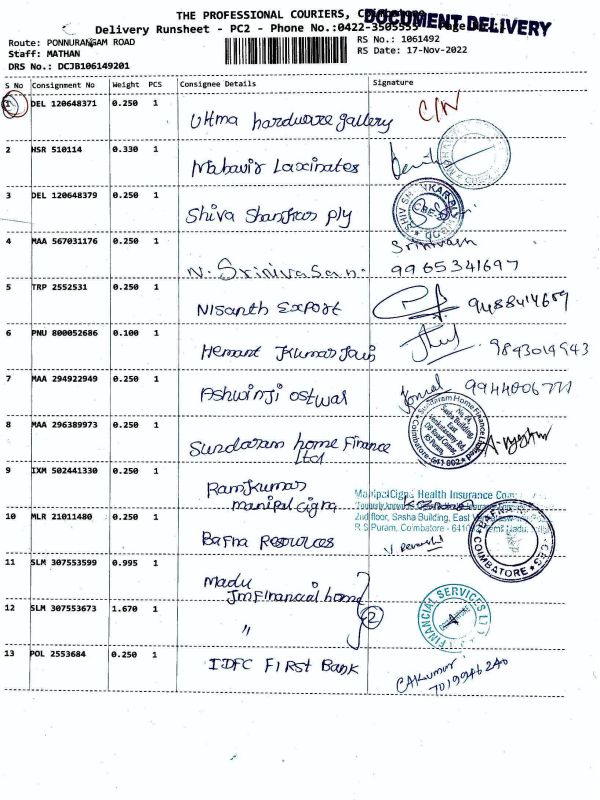 THE PROFESSIONAL COURIERS,
DOCUMENT DELIVERY
Delivery Runsheet - PC2 - Phone No.:0422-3505555
Route: PONNURANGAM ROAD
RS No.: 1061492
Staff: MATHAN
RS Date: 17-Nov-2022
DRS No.: DCJB106149201
S No Consignment No Weight PCS Consignee Details Signature
1 DEL 120648371 0.250 1 Uttma hardware gallery C/N
2 HSR 510114 0.330 1 Mahavir Laxinates
3 DEL 120648379 0.250 1 Shiva Shankar ply
4 MAA 567031176 0.250 1 N. Srinivasan. Srinivasn 9965341697
5 TRP 2552531 0.250 1 Nisanth Export
6 PNU 800052686 0.100 1 Hemant Kumar Jain 9843019943
7 MAA 294922949 0.250 1 Ashwinji ostwal
8 MAA 296389973 0.250 1 Sundaram home Finance Ltd
Sundaram Home Finance Limited
No. 24, Sasha Building, East Venkatasamy Rd, DB Road Corner, RS Puram, Coimbatore-641 002
9 IXM 502441330 0.250 1 Ramkumar manipal cigna
ManipalCigna Health Insurance
2nd floor, Sasha Building, East
R.S Puram, Coimbatore -
10 MLR 21011480 0.250 1 Bafna Resources
COIMBATORE
11 SLM 307553599 0.995 1 Madu Jm Financial home
12 SLM 307553673 1.670 1 " 2
FINANCIAL SERVICES
13 POL 2553684 0.250 1 IDFC First Bank CAKumar 7019946240